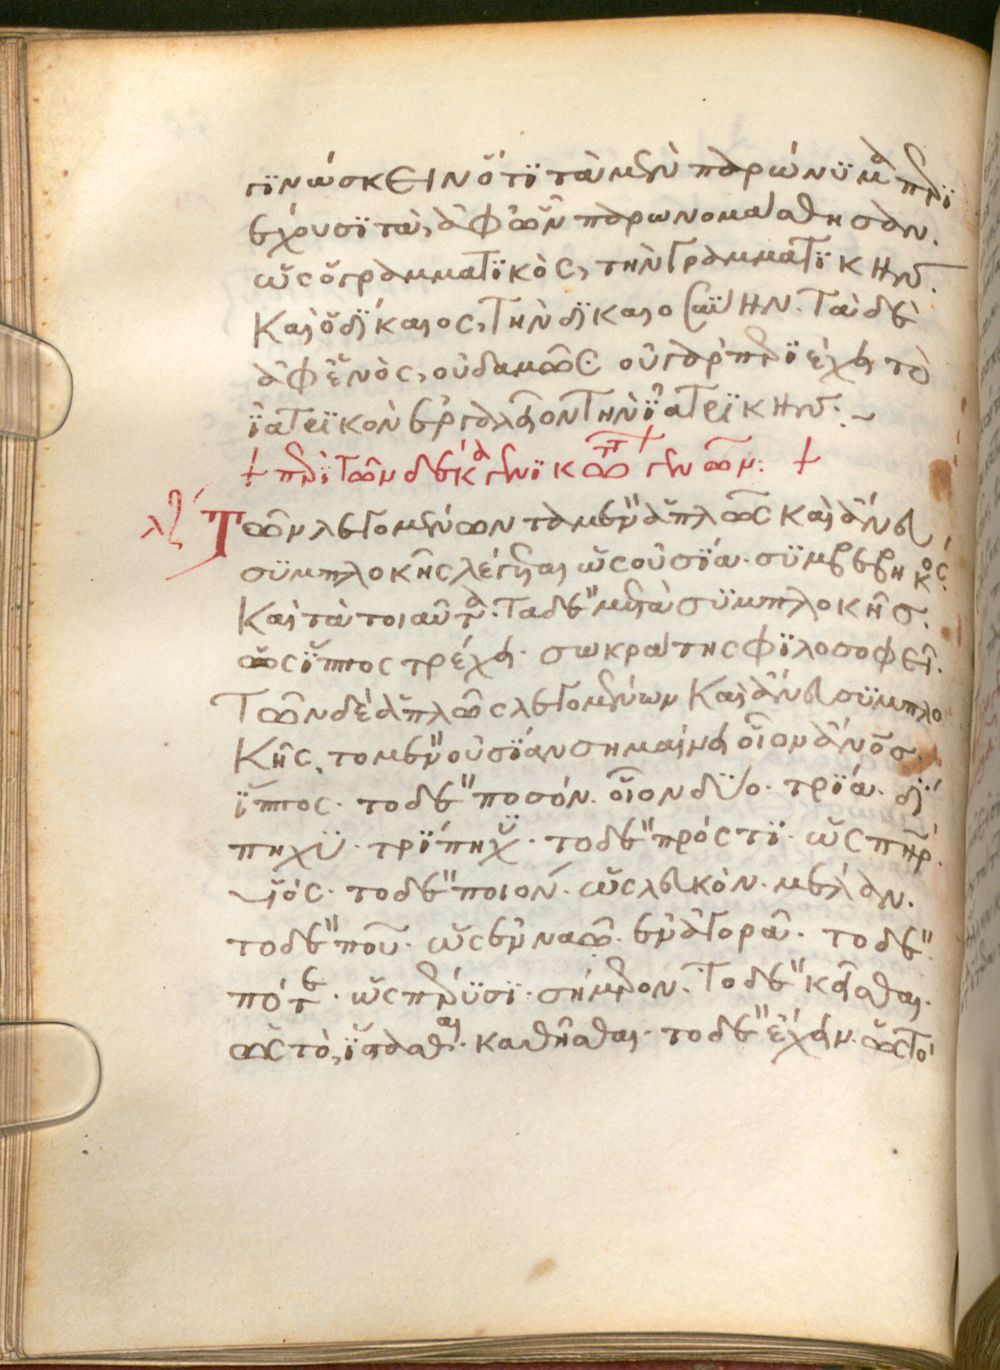 γϊνώσκειν ὅτϊ τὰ μὲν παρώνϋμα περϊ
έχουσϊ τὰ, ἀφ ὧν παρωνομάσθησαν.
ὡς ὁ γραμματϊκὸς, τὴν γραμματϊκήν.
Καὶ ὁ δϊκαιος, τὴν δϊκαιοσύνην. Τὰ δὲ
ἀφ ἑνὸς, οὐδαμῶς οὐ γὰρ περϊέχει τὸ
ϊατρϊκὸν ἐργαλεῖον τὴν ϊατρϊκήν.
+ περϊ τῶν δέκα γενϊκωτάτων γενῶν: +
λζ Τῶν λεγομένων τὰ μὲν ἁπλῶς καὶ ἄνευ
σϋμπλοκῆς λέγεται ὡς οὐσϊα· σϋμβεβηκός.
Καὶ τὰ τοιαῦτα. Τὰ δὲ μετὰ σϋμπλοκῆς.
ὡς ϊππος τρέχει· σωκράτης φϊλοσοφεῖ.
Τῶν δὲ ἁπλῶς λεγομένων καὶ ἄνευ σϋμπλο
κῆς, τὸ μὲν οὐσϊαν σημαίνει οἷον ἄνος.
ϊππος· τὸ δὲ ποσόν. οἷον δϋο· τρϊα· δϊ
πηχϋ· τρϊπηχϋ· τὸ δὲ πρός τϊ· ὡς πηρ.
ϋϊός· τὸ δὲ ποιόν· ὡς λευκόν· μέλαν.
τὸ δὲ ποῦ· ὡς ἐν ναῶ· ἐν ἀγορᾶ· τὸ δὲ
πότε· ὡς πέρϋσϊ· σήμερον. Τὸ δὲ κεῖσθαι.
ὡς τὸ, ϊστασθαι· καθῆσθαι· τὸ δὲ ἔχειν· ὡς τὸ